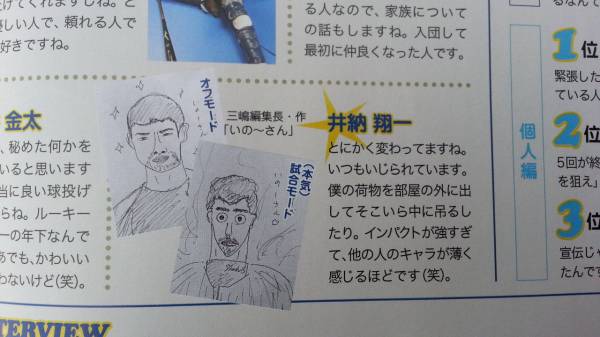 けてくれますしね。と
しい人で、頼れる人で
好きですね。
る人なので、家族について
の話もしますね。入団して
最初に仲良くなった人です。
金太
、秘めた何かを
いると思います
当に良い球投げ
らね。ルーキー
ーの年下なんで
あでも、かわいい
わないけど(笑)。
オフモード
いの〜さん
三嶋編集長・作
「いの〜さん」
(本気)
試合モード
いの〜さん
井納 翔一
とにかく変わってますね。
いつもいじられています。
僕の荷物を部屋の外に出
してそこいら中に吊るし
たり。インパクトが強すぎ
て、他の人のキャラが薄く
感じるほどです(笑)。
個人編
1位
緊張した
ている人
2位
5回が終
を狙え」
3位
宣伝じゃ
たんです
TERVIEW